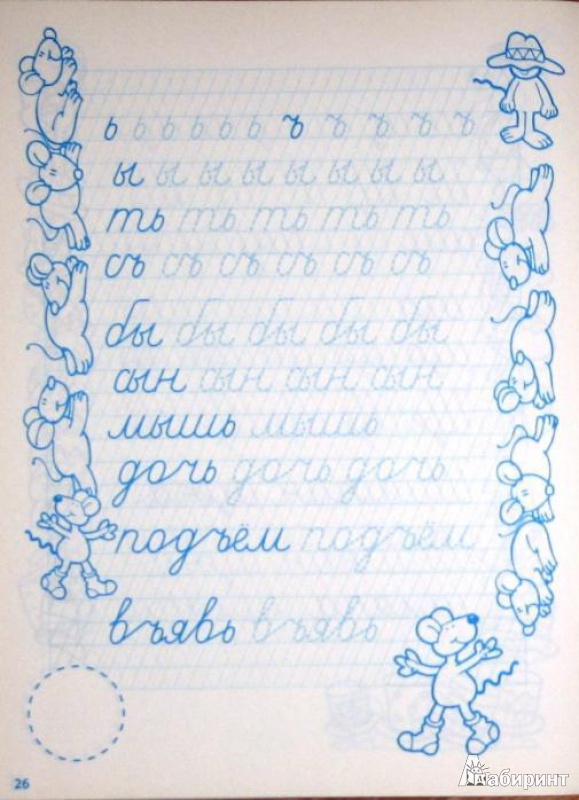 ь ь ь ь ь ь ъ ъ ъ ъ ъ
ы ы ы ы ы ы ы ы
ть ть ть ть ть
съ съ съ съ съ съ
бы бы бы бы бы
сын сын сын сын
мышь мышь
дочь дочь дочь
подъём подъём
въявь въявь
26
Лабиринт